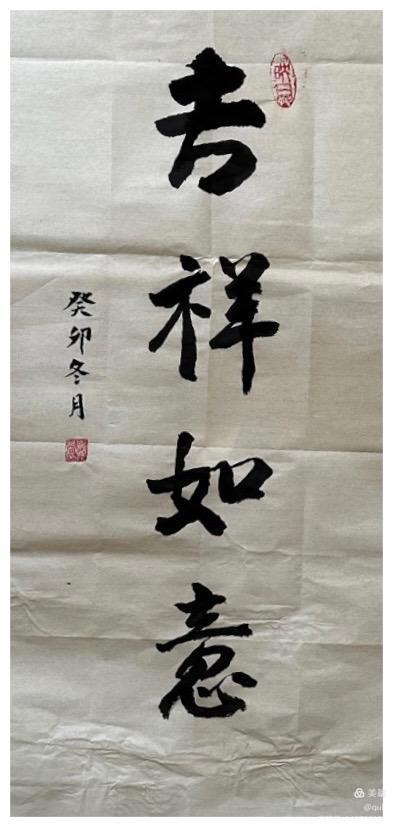 吉祥如意
癸卯冬月
美篇